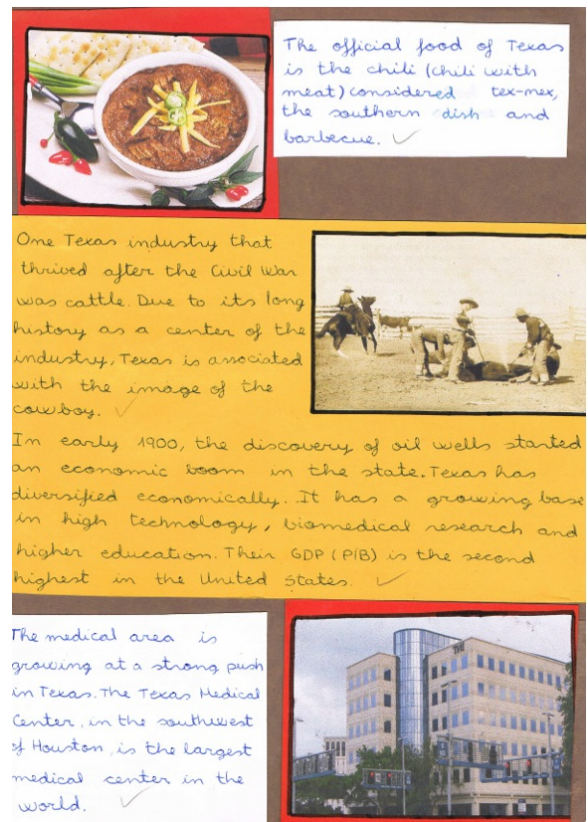 The official food of Texas
is the chili (chili with
meat) considered tex-mex,
the southern dish and
barbecue.
One Texas industry that
thrived after the Civil War
was cattle. Due to its long
history as a center of the
industry, Texas is associated
with the image of the
cowboy.
In early 1900, the discovery of oil wells started
an economic boom in the state. Texas has
diversified economically. It has a growing base
in high technology, biomedical research and
higher education. Their GDP (PIB) is the second
highest in the United States.
The medical area is
growing at a strong push
in Texas. The Texas Medical
Center, in the southwest
of Houston, is the largest
medical center in the
world.